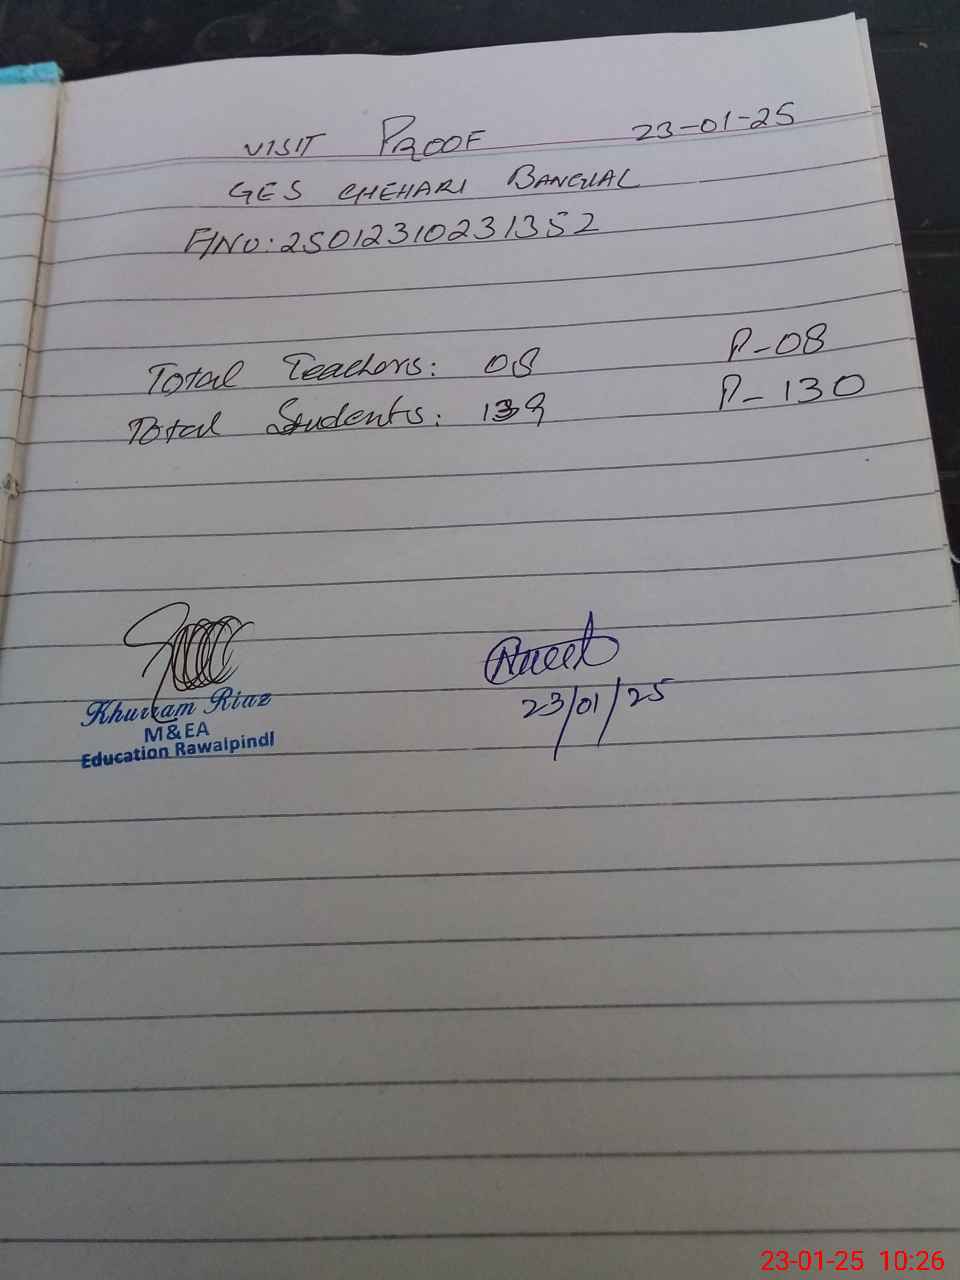 VISIT PROOF 23-01-25
GES CHEHARI BANGIAL
F/NO: 25012310231352
Total Teachers: 08 P-08
Total Students: 139 P-130
Khurram Riaz
M&EA
Education Rawalpindi
23/01/25
23-01-25 10:26